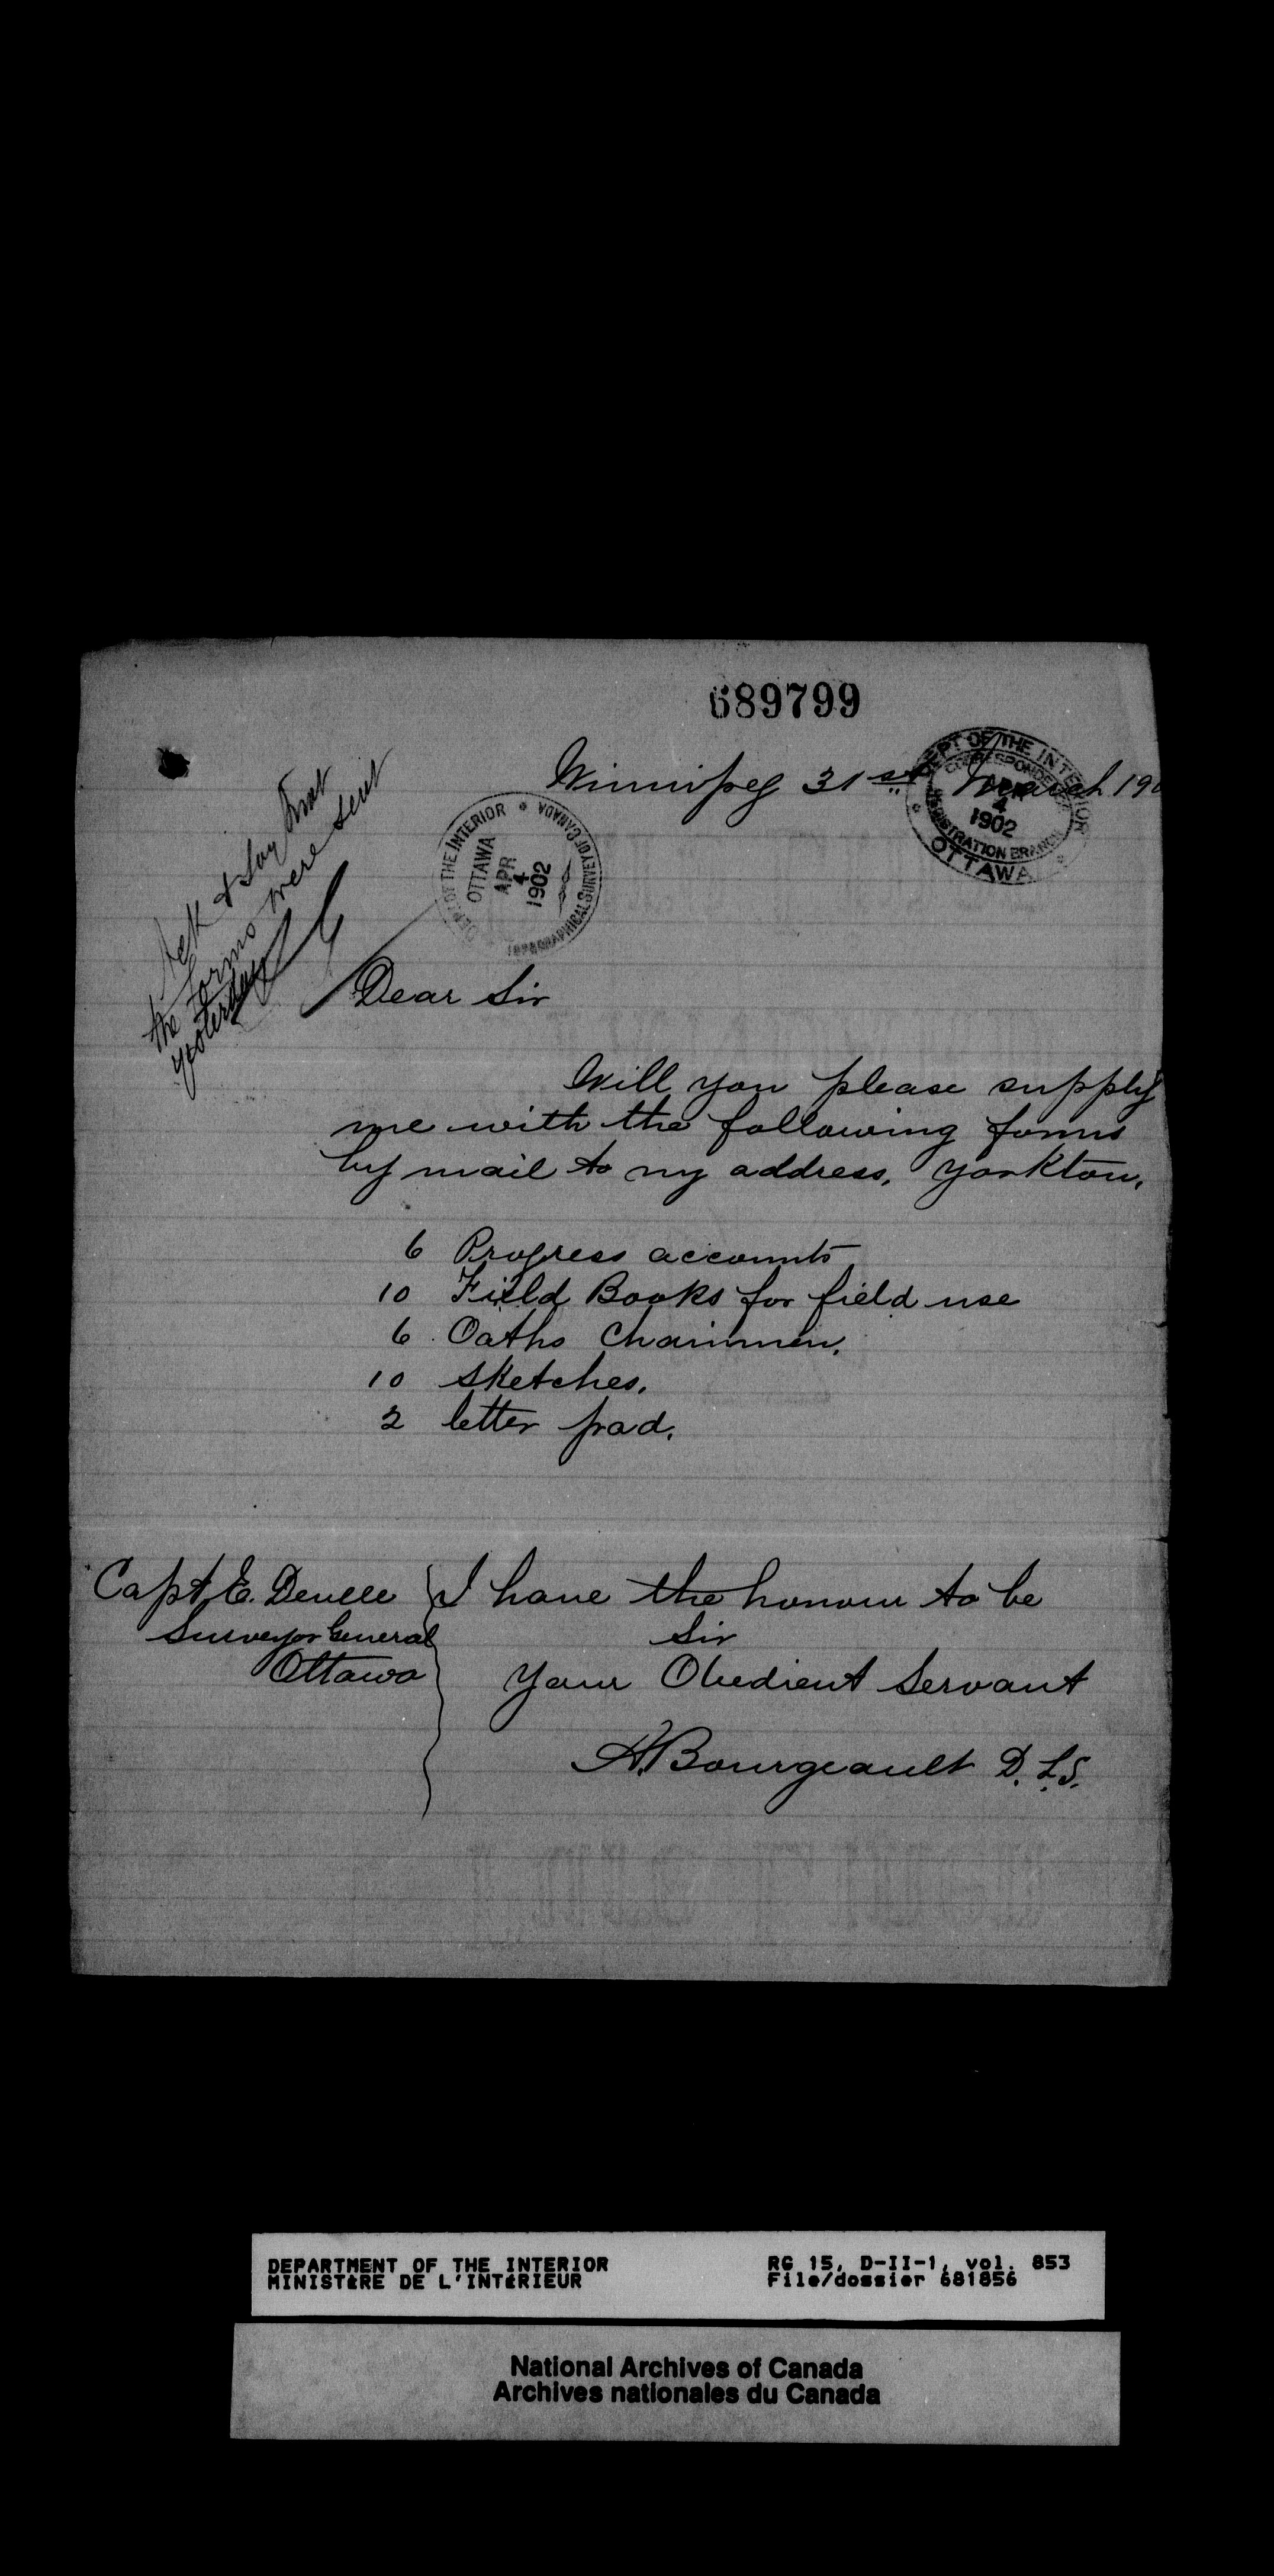 689799
Winnipeg 31st March 190
DEPT OF THE INTERIOR
CORRESPONDENCE
APR
4
1902
REGISTRATION BRANCH
OTTAWA
DEPT OF THE INTERIOR
OTTAWA
APR
4
1902
TOPOGRAPHICAL SURVEY OF CANADA
Ack & say that
the forms were sent
yesterday
Dear Sir
Will you please supply
me with the following forms
by mail to my address, Yorkton.
6 Progress accounts
10 Field Books for field use
6 Oaths Chainmen.
10 sketches.
2 letter pad.
Capt. E. Deville
Surveyor General
Ottawa
I have the honour to be
Sir
Your Obedient Servant
A. Bourgeault D.L.S.
DEPARTMENT OF THE INTERIOR
MINISTÈRE DE L'INTÉRIEUR
RG 15, D-II-1, vol. 853
File/dossier 681856
National Archives of Canada
Archives nationales du Canada